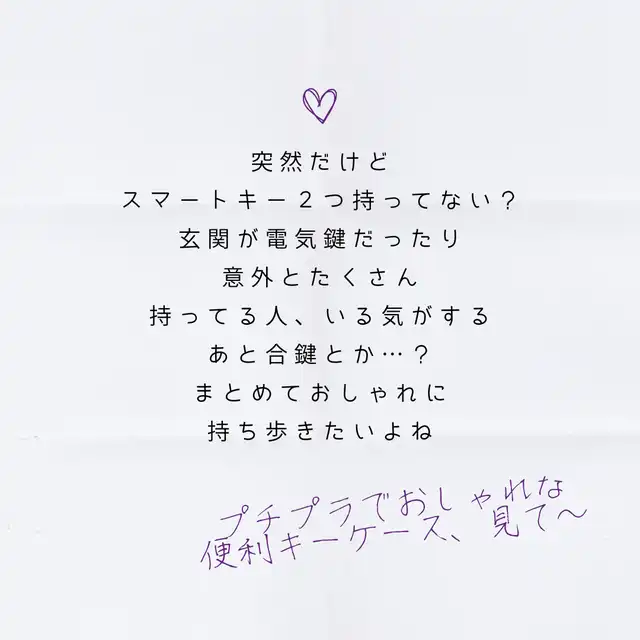 突然だけど
スマートキー２つ持ってない？
玄関が電気鍵だったり
意外とたくさん
持ってる人、いる気がする
あと合鍵とか…？
まとめておしゃれに
持ち歩きたいよね
プチプラでおしゃれな
便利キーケース、見て〜